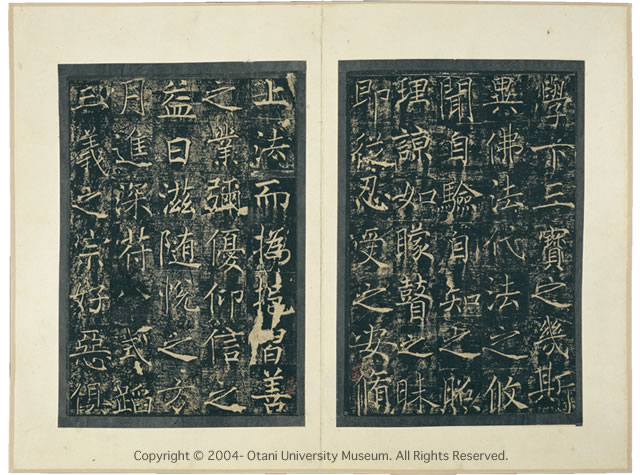 學下三寶之幾斯
異佛法代法之攸
聞自驗自知之照
理諒如矇瞽之昧
即從忍受之安脩
止法而習善
之業彌優仰信之
益日滋随悅之方
月進深苻八蹈
義之宗好惡
Copyright © 2004- Otani University Museum. All Rights Reserved.